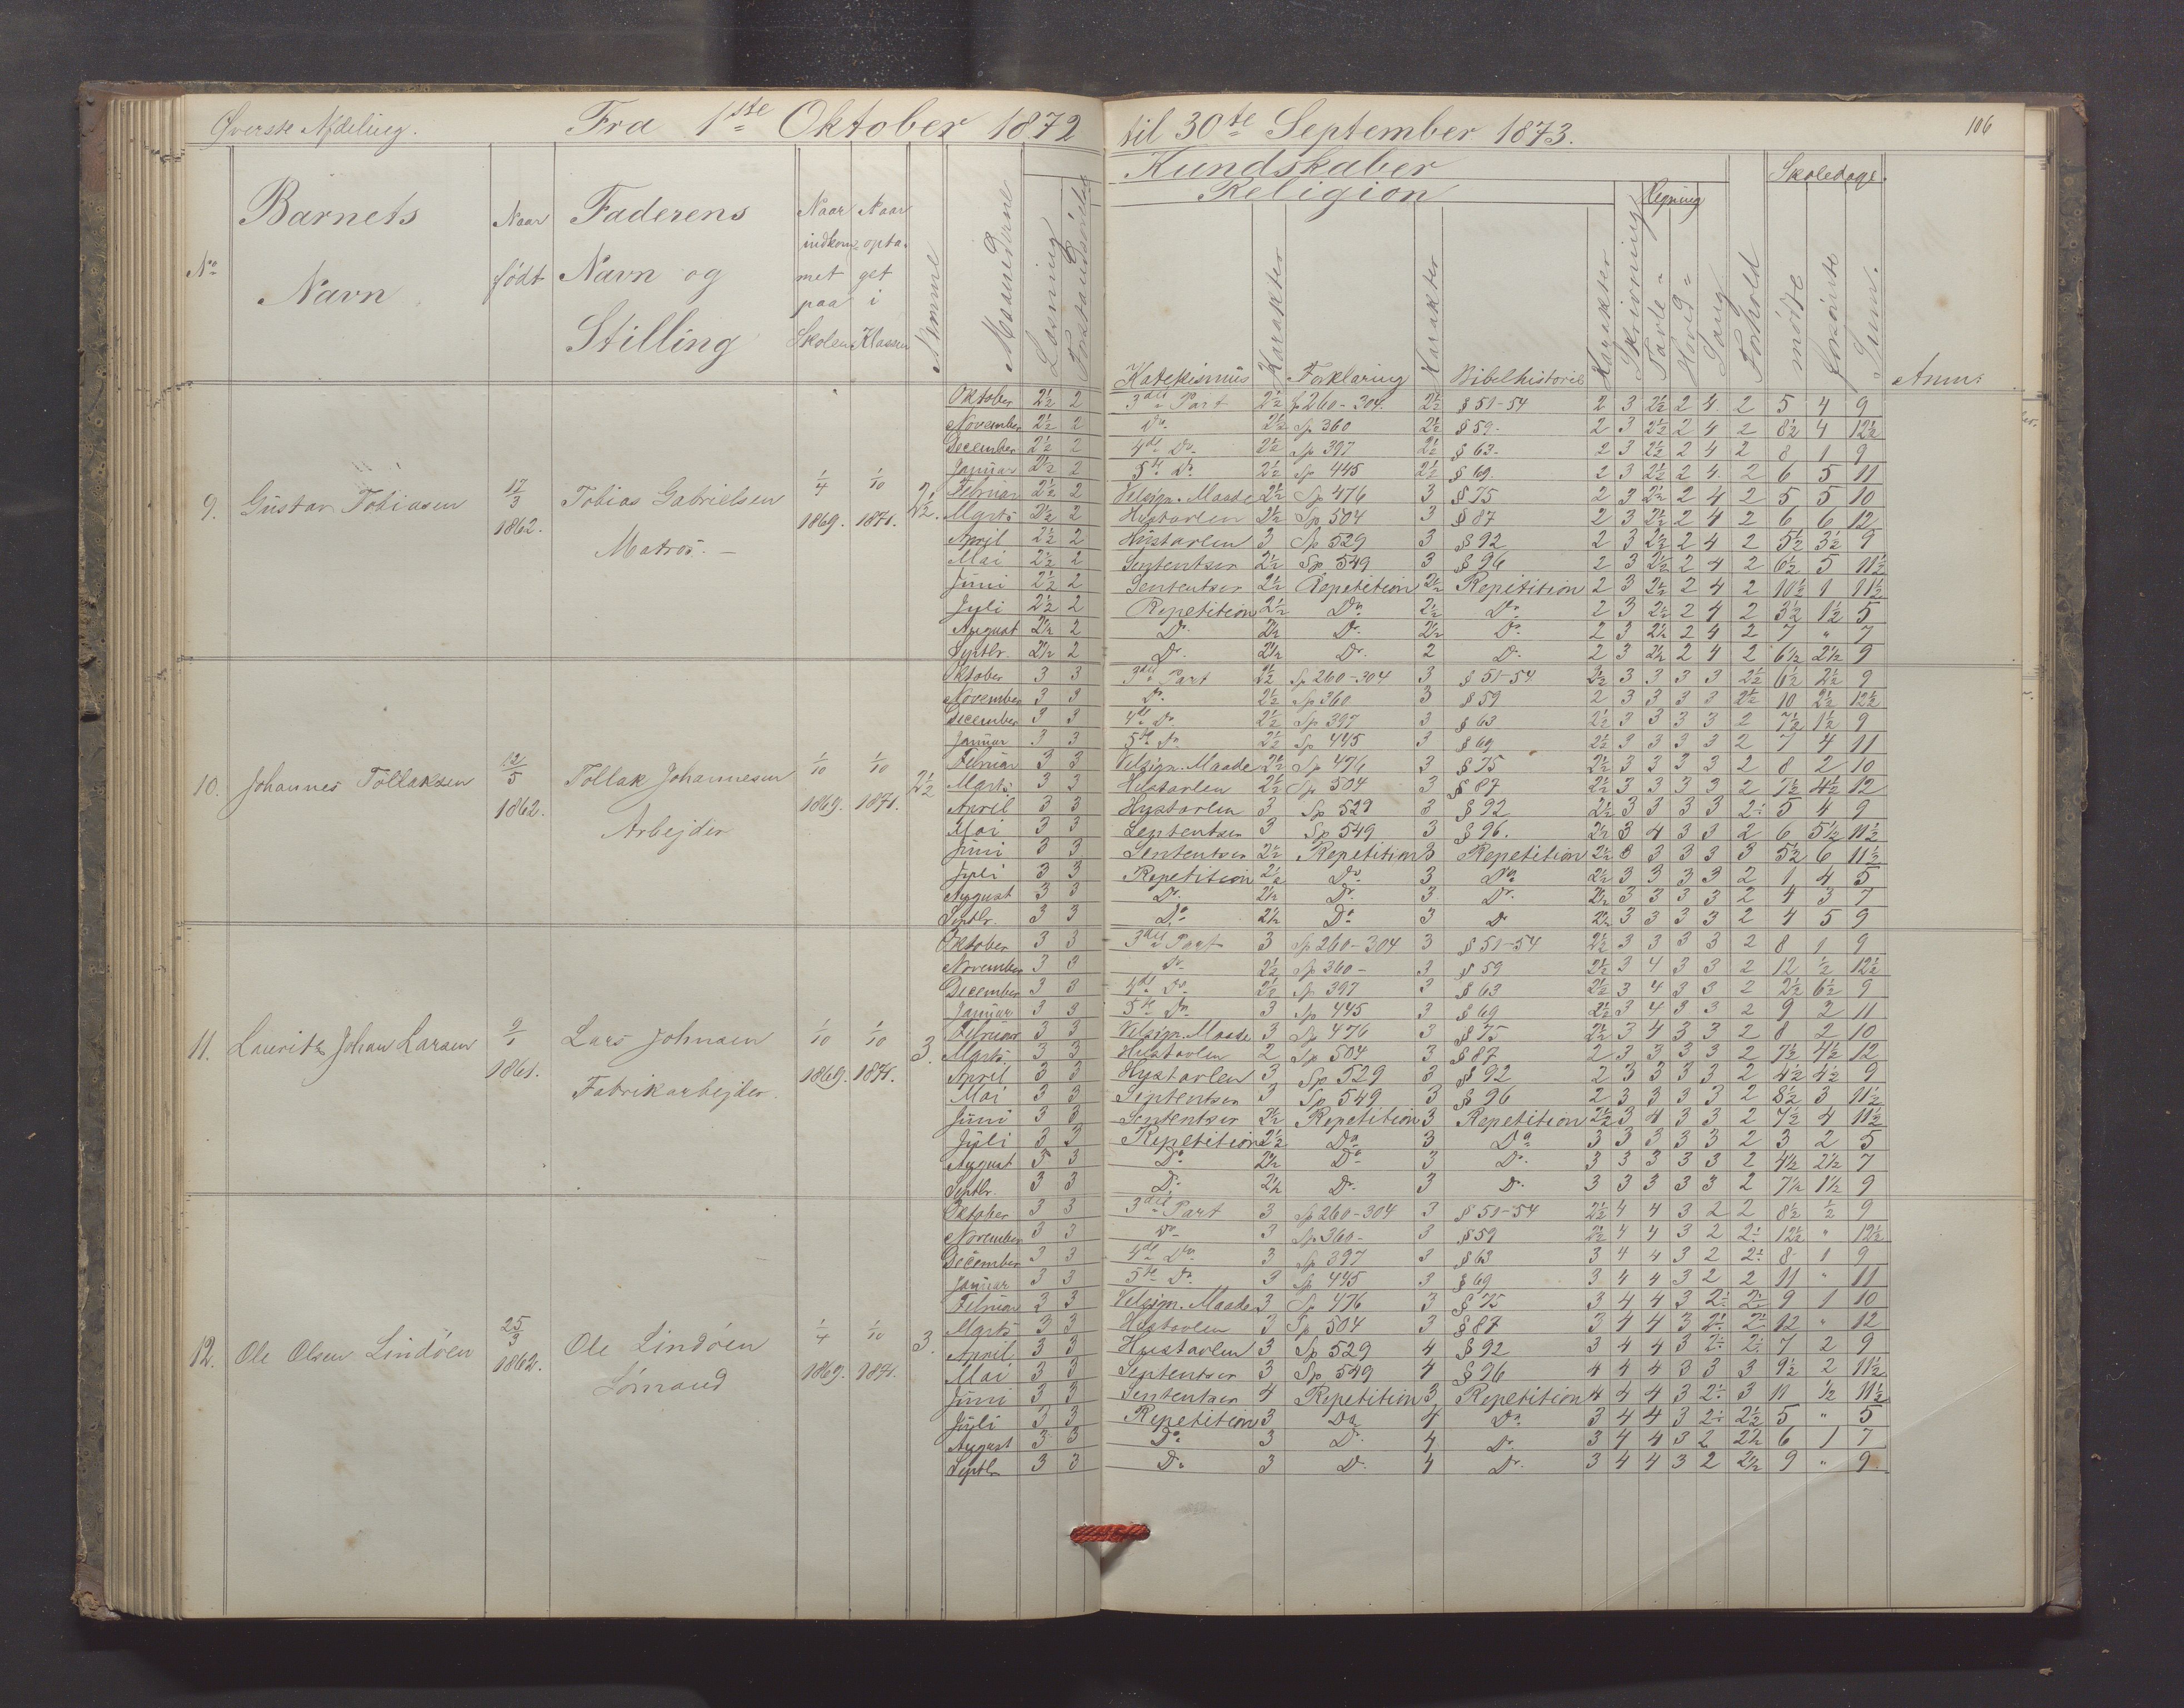 Øverste Afdeling. Fra 1ste Oktober 1872 til 30te September 1873. 106
Kundskaber
Religion
Regning
Skoledage.
No
Barnets Navn
Naar født
Faderens Navn og Stilling
Naar indkommet paa Skolen
Naar optaget i Klassen
Maanederne
Læsning
Katekismus
Karakter
Forklaring
Karakter
Bibelhistorie
Karakter
Skrivning
Tavle-
Hoved-
Sang
Forhold
mødte
forsømte
Sum.
Anm:
9. Gustav Tobiasen 17/3 1862. Tobias Gabrielsen Matros. 1/4 1869. 1/10 1871. 2½.
Oktober 2½ 2 3die Part 2½ Sp 260-304. 2½ § 51-54 2 3 2½ 2 4 2 5 4 9
November 2½ 2 Do 2½ Sp 360 2½ § 59. 2 3 2½ 2 4 2 8½ 4 12½
December 2½ 2 4de Do 2½ Sp 397 2½ § 63. 2 3 2½ 2 4 2 8 1 9
Januar 2½ 2 5te Do 2½ Sp 445 2½ § 69. 2 3 2½ 2 4. 2 6 5 11
Februar 2½ 2 Velsign. Maade 2½ Sp 476 3 § 75 2 3 2½ 2 4 2 5 5 10
Marts 2½ 2 Hustavlen 2½ Sp 504 3 § 87 2 3 2½ 2 4 2 6 6 12
April 2½ 2 Hustavlen 3 Sp 529 3 § 92 2 3 2½ 2 4 2 5½ 3½ 9
Mai 2½ 2 Sententser 2½ Sp 549 3 § 96 2 3 2½ 2 4 2 6½ 5 11½
Juni 2½ 2 Sententser 2½ Repetition 2½ Repitition 2 3 2½ 2 4 2 10½ 1 11½
Juli 2½ 2 Repetition 2½ Do 2½ Do 2 3 2½ 2 4 2 3½ 1½ 5
August 2½ 2 Do 2½ Do 2½ Do 2 3 2½ 2 4 2 7 " 7
Septbr. 2½ 2 Do 2½ Do 2 Do 2 3 2½ 2 4 2 6½ 2½ 9
10. Johannes Tollaksen 12/5 1862. Tollak Johannesen Arbejder 1/10 1869. 1/10 1871. 2½
Oktober 3 3 3die Part 2½ Sp 260-304 3 § 51-54 2½ 3 3 3 3 2½ 6½ 2½ 9
November 3 3 Do 2½ Sp 360 3 § 59 2 3 3 3 3 2½ 10 2½ 12½
December 3 3 4de Do 2½ Sp 397 3 § 63 2½ 3 3 3 3 2 7½ 1½ 9
Januar 3 3 5te Do 2½ Sp 445 3 § 69 2½ 3 3 3 3 2 7 4 11
Februar 3 3 Velsign. Maade 2½ Sp 476 3 § 75 2½ 3 3 3 3 2 8 2 10
Marts 3 3 Hustavlen 2½ Sp 504 3 § 87 2½ 3 3 3 3 2 7½ 4½ 12
April 3 3 Hustavlen 3 Sp 529 3 § 92 2½ 3 3 3 3 2 5 4 9
Mai 3 3 Sententser 3 Sp 549 3 § 96. 2½ 3 4 3 3 2 6 5½ 11½
Juni 3 3 Sententser 2½ Repetition 3 Repetition 2½ 3 3 3 3 3 5½ 6 11½
Juli 3 3 Repetition 2½ Do 3 Do 2½ 3 3 3 3 2 1 4 5
August 3 3 Do 2½ Do 3 Do 2½ 3 3 3 3 2 4 3 7
Septbr. 3 3 Do 2½ Do 3 Do 2½ 3 3 3 3 2 4 5 9
11. Lauritz Johan Larsen 9/1 1861. Lars Johnsen Fabrikarbejder. 1/10 1869. 1/10 1871. 3.
Oktober 3 3 3die Part 3 Sp 260-304 3 § 51-54 2½ 3 3 3 3 2 8 1 9
November 3 3 Do 2½ Sp 360- 3 § 59 2½ 3 4 3 3 2 12 ½ 12½
December 3 3 4de Do 2½ Sp 397 3 § 63 2½ 3 4 3 3 2 2½ 6½ 9
Januar 3 3 5te Do 3 Sp 445 3 § 69 2½ 3 4 3 3 2 9 2 11
Februar 3 3 Velsign. Maade 3 Sp 476 3 § 75 2½ 3 4 3 3 2 8 2 10
Marts 3 3 Hustavlen 2 Sp 504 3 § 87 2 3 3 3 3 2 7½ 4½ 12
April 3 3 Hustavlen 3 Sp 529 3 § 92 2 3 3 3 3 2 4½ 4½ 9
Mai 3 3 Sententser 3 Sp 549 3 § 96 2 3 3 3 3 2 8½ 3 11½
Juni 3 3 Sententser 2½ Repetition 3 Repetition 2½ 3 4 3 3 2 7½ 4 11½
Juli 3 3 Repetition 2½ Do 3 Do 3 3 3 3 3 2 3 2 5
August 3 3 Do 2½ Do 3 Do 3 3 3 3 3 2 4½ 2½ 7
Septbr. 3 3 Do 2½ Do 3 Do 3 3 3 3 3 2 7½ 1½ 9
12. Ole Olsen Lindöen 25/3 1862. Ole Lindöen Sömand 1/4 1869. 1/10 1871. 3.
Oktober 3 3 3die Part 3 Sp 260-304 3 § 51-54 2½ 4 4 3 2 2 8½ ½ 9
November 3 3 Do 3 Sp 360- 3 § 59 2½ 4 4 3 2 2÷ 12½ " 12½
December 3 3 4de Do 3 Sp 397 3 § 63 3 4 4 3 2 2÷ 8 1 9
Januar 3 3 5te Do 3 Sp 445 3 § 69 3 4 4 3 2 2 11 " 11
Februar 3 3 Velsign. Maade 3 Sp 476 3 § 75 3 4 4 3 2÷ 2÷ 9 1 10
Marts 3 3 Hustavlen 3 Sp 504 3 § 87 3 4 4 3 2÷ 2÷ 12 " 12
April 3 3 Hustavlen 3 Sp 529 4 § 92 3 4 4 3 2÷ 2÷ 7 2 9
Mai 3 3 Sententser 3 Sp 549 4 § 96 4 4 4 3 3 3 9½ 2 11½
Juni 3 3 Sententser 4 Repetition 3 Repetition 4 4 4 3 2÷ 3 11 ½ 11½
Juli 3 3 Repetition 3 Do 4 Do 3 4 4 3 2÷ 2½ 5 " 5
August 3 3 Do 3 Do 4 Do 3 4 4 3 2 2½ 6 1 7
Septbr 3 3 Do 3 Do 4 Do 3 4 4 3 2 2½ 9 " 9